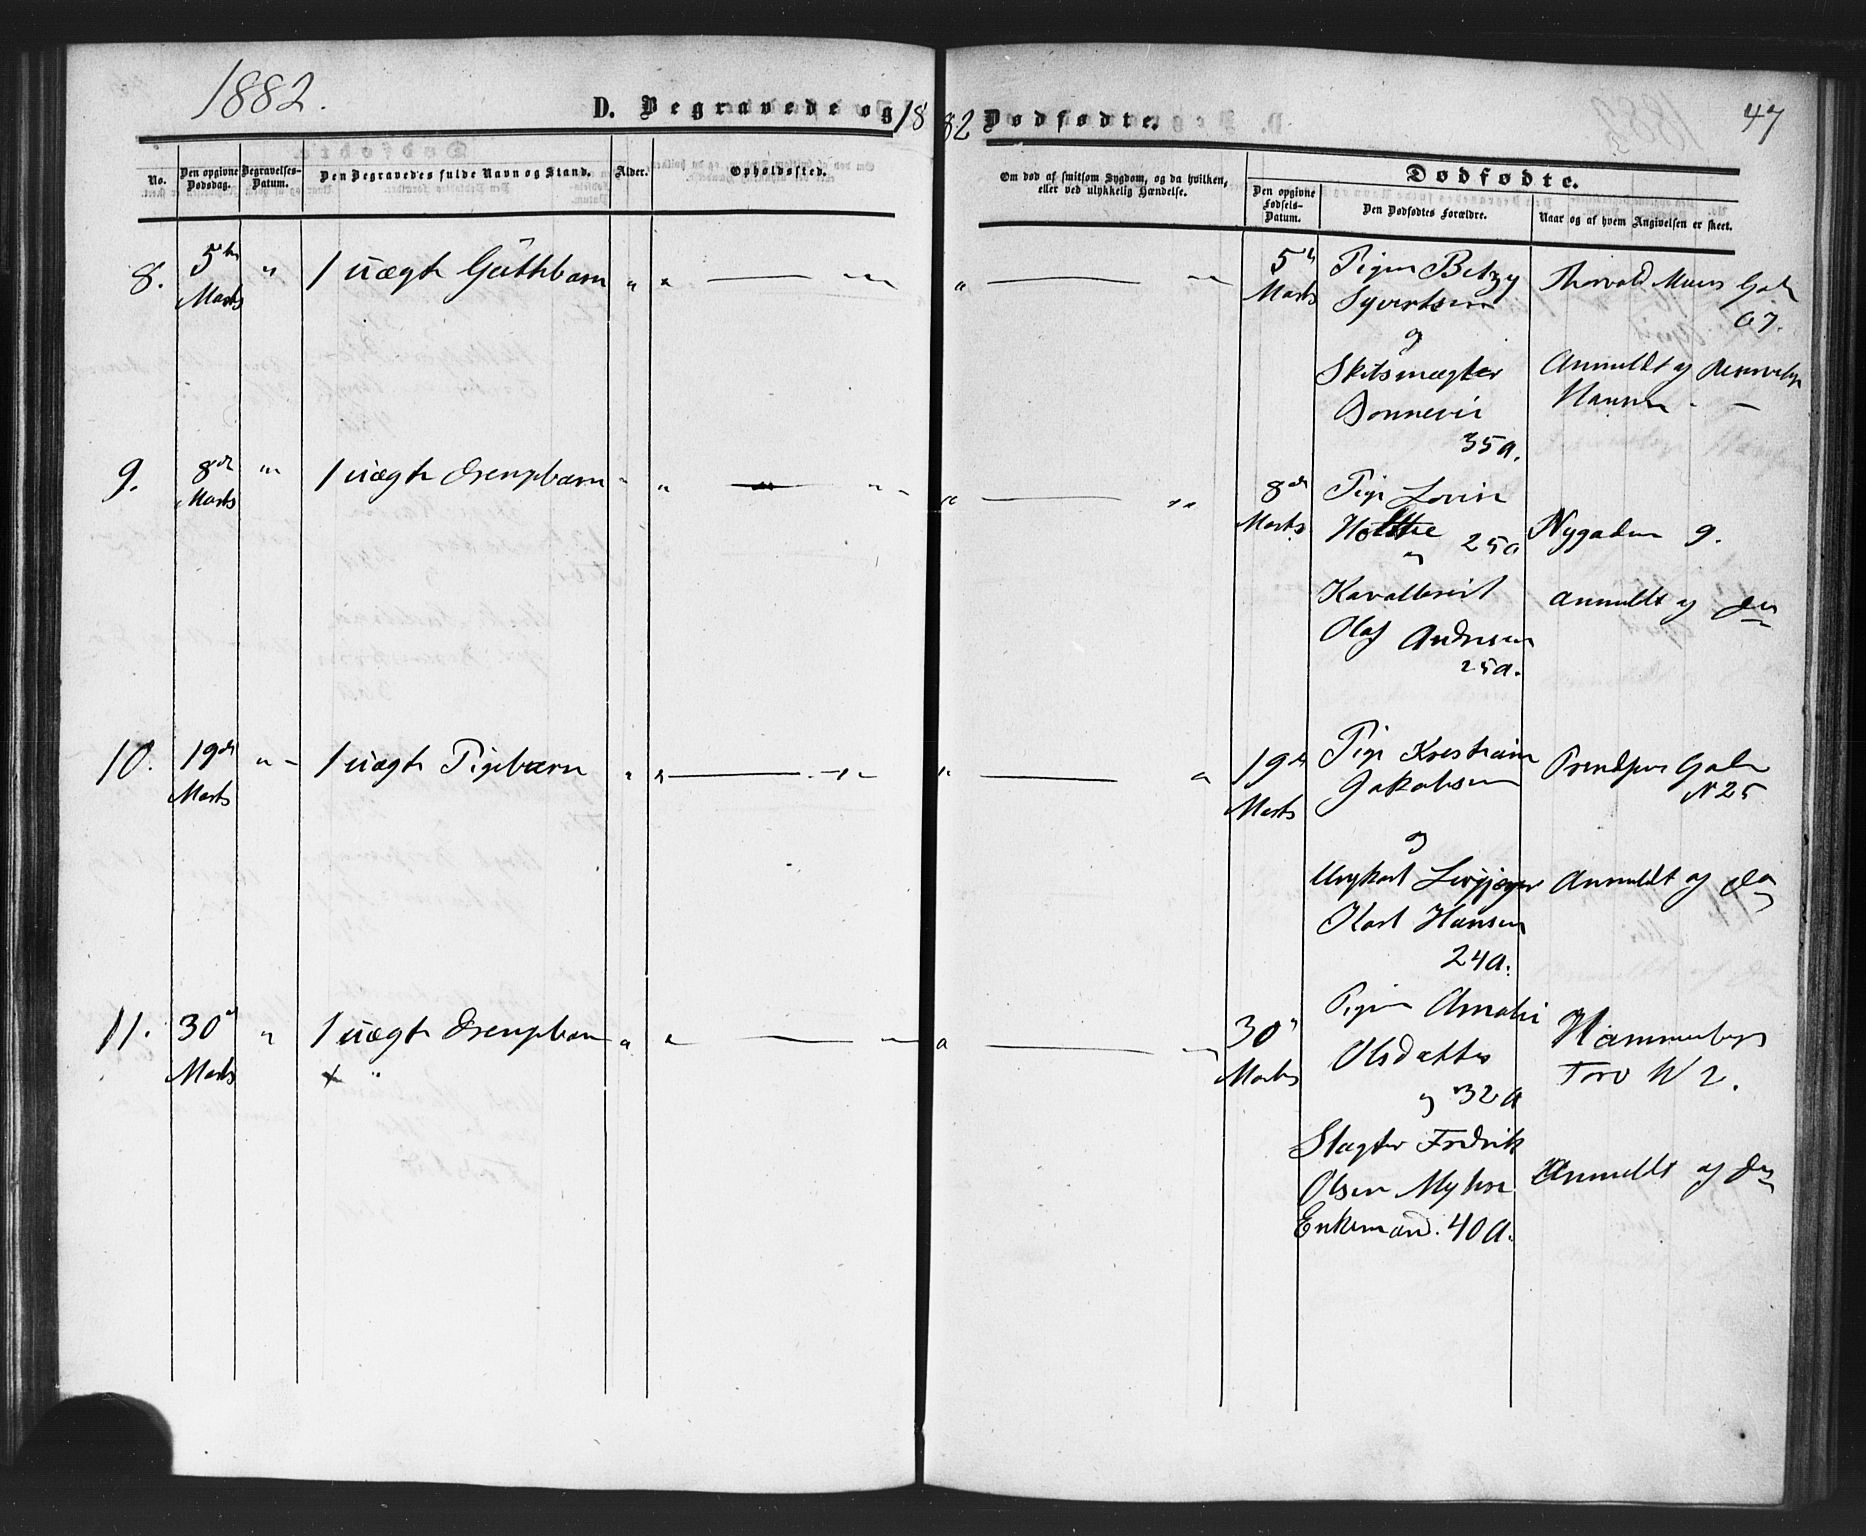 1882.
D. Begravede og 1882 Dødfødte.
47
No.
Den opgivne Dødsdag.
Begravelses-Datum.
Den Begravedes fulde Navn og Stand.
Alder.
Opholdssted.
Om død af smitsom Sygdom, og da hvilken,
eller ved ulykkelig Hændelse.
Dødfødte.
Den opgivne Fødsels-Datum.
Den Dødfødtes Forældre.
Naar og af hvem Angivelsen er skeet.
8.
5te Marts
1 uægte Guttebarn
5te Marts
Pigen Betzy
Syvertsen
og
35 a.
Thorvald Meyers Gade
67.
Anmeldt af
Hansen
9.
8de Marts
1 uægte Drengebarn
8de Marts
Pige Lovise
25 a
og
Kavallerist
Olaf Andersen
25 a.
Nygaden 9.
anmeldt af do
10.
19de Marts
1 uægte Pigebarn
19de Marts
Pige Kristiane
Jakobsen
og
Karl Hansen
24 a.
Gade
N 25
Anmeldt af do
11.
30te Marts
1 uægte Drengebarn
x "
30te Marts
Pigen Amalie
Olsdatter
og 32 a
Slagter Fredrik
Olsen Myhre
Enkemand. 40 a.
Hammerborgs
Torv N 2.
Anmeldt af do